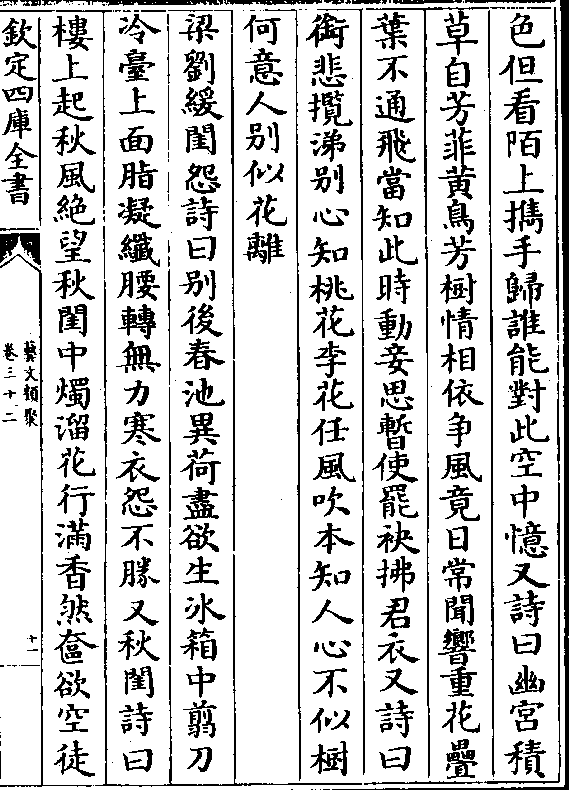 色但看陌上擕手歸誰能對此空中憶又詩曰幽宮積
草自芳菲黄鳥芳樹情相依争風竟日常聞響重花疊
葉不通飛當知此時動妾思暫使罷袂拂君衣又詩曰
銜悲攬涕别心知桃花李花任風吹本知人心不似樹
何意人别似花離
梁劉緩閨怨詩曰别後春池異荷盡欲生冰箱中翦刀
冷臺上面脂凝纖腰轉無力寒衣怨不勝又秋閨詩曰
樓上起秋風絶望秋閨中燭溜花行滿香然奩欲空徒
欽定四庫全書
藝文類聚
卷三十二
十一